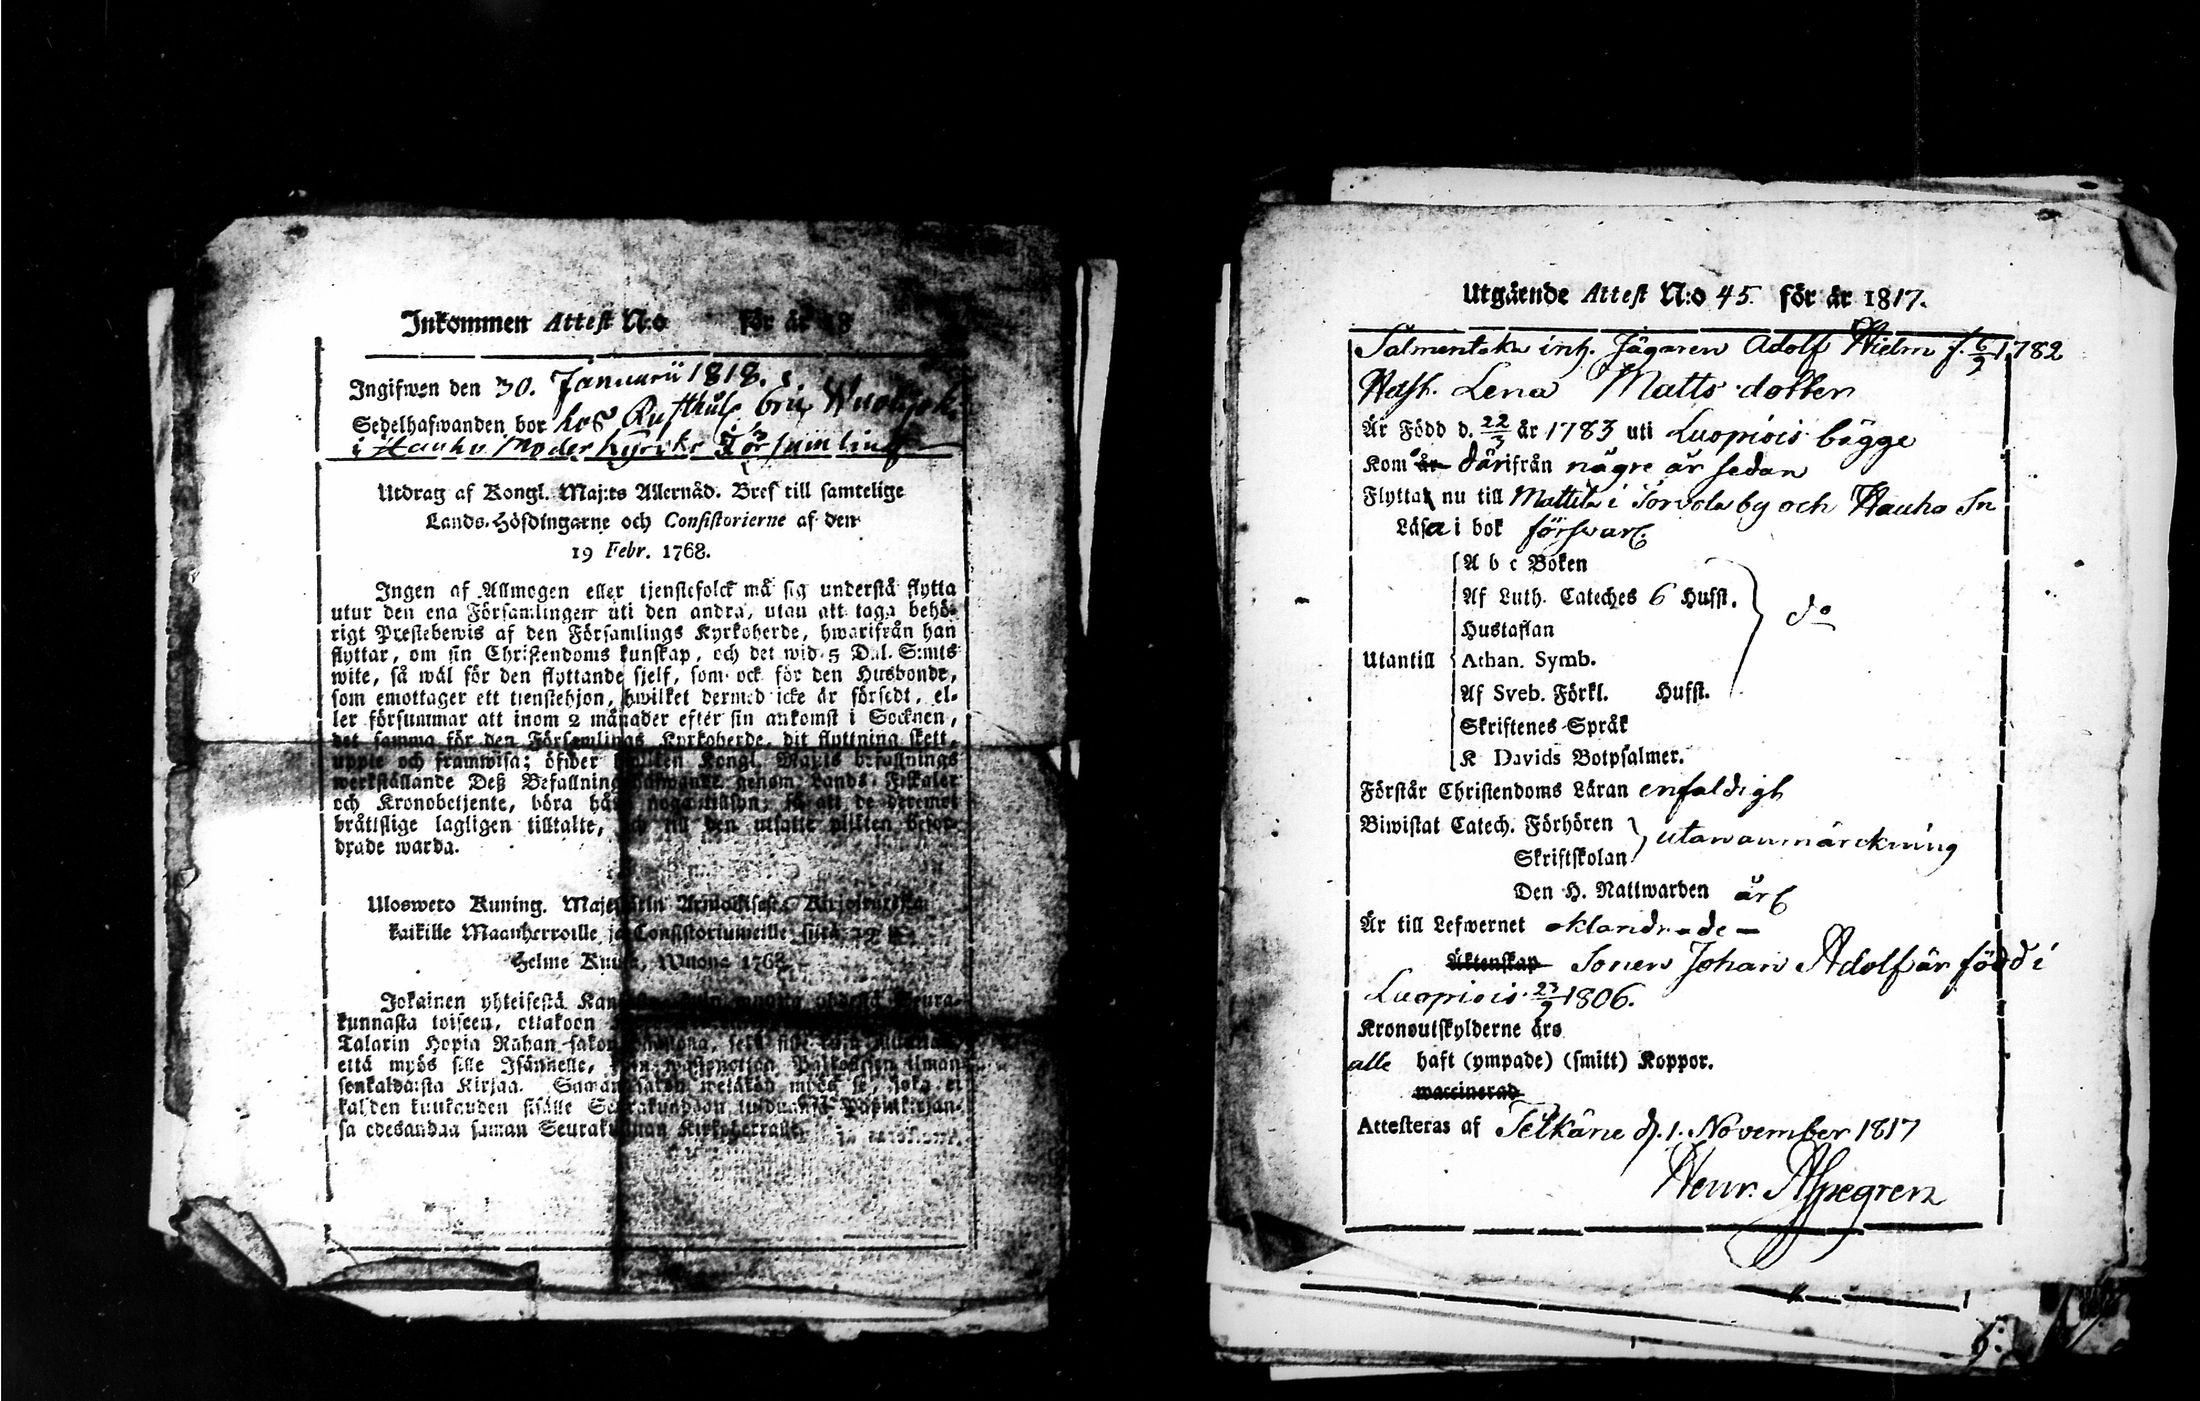 Inkommen Attest N:o för år 18
Ingifwen den 30. Januarii 1818.
Sedelhafwanden bor hos Rusthål. brin
i Hauho Moderkyrko Församling
Utdrag af Kongl. Maj:ts Allernåd. Bref till samtelige
Lands-Höfdingarne och Consistorierne af den
19 Febr. 1768.
Ingen af Allmogen eller tjenstefolck må sig understå flytta
utur den ena Församlingen uti den andra, utan att taga behö-
rigt Prestebewis af den Församlings Kyrkoherde, hwarifrån han
flyttar, om sin Christendoms kunskap, och det wid 5 Dal. S:mts
wite, så wäl för den flyttande sjelf, som ock för den Husbonde,
som emottager ett tienstehjon, hwilket dermed icke är försedt, el-
ler försummar att inom 2 månader efter sin ankomst i Socknen,
det samma för den Församlings Kyrkoherde, dit flyttning skett,
uppte och framwisa; öfwer Kongl. Maj:ts befallnings
werkställande Deß Befallningshafwande genom Lands-Fiskaler
och Kronobetjente, böra noga tillsyn, så att de deremot
bråtislige lagligen tilltalte, och till den utsatte plikten befor-
drade warda.
Ulosweto Kuning. Majestetin Armollisesta Kirjoituxesta
kaikille Maanherroille ja Consistoriumeille, siitä 19 p.
Helme Kuusa, Wuona 1768.
Jokainen yhteisestä Seura-
kunnasta toiseen, ottakoon
Talarin Hopia Rahan sakon
että myös sille Isännelle, ilman
senkaldaista Kirjaa. myös se, joka ei
kahden kuukauden sisälle Seurakundaan Papinkirjan-
sa edesandaa saman Seurakunnan Kirkoherralle
Utgående Attest N:o 45. för år 1817.
Salmentaka inh. Jägaren Adolf Hielm f. 6/9 1782
Hust. Lena Matts dotter
Är Född d. 22/3 år 1783 uti Luopiois bägge
Kom år därifrån någre år sedan
Flytta nu till Mattila i Torvola by och Hauho Sn
Läsa i bok förswarl.
A b c Boken
Af Luth. Cateches 6 Hufst. do
Hustaflan
Utantill Athan. Symb.
Af Sveb. Förkl. Hufst.
Skriftenes Språk
K Davids Botpsalmer.
Förstår Christendoms Läran enfaldigh
Biwistat Catech. Förhören utan anmärckning
Skriftskolan
Den H. Nattwarden årl
Är till Lefwernet oklandrade
Äktenskap Sonen Johan Adolf är född i
Luopiois 23/9 1806.
Kronoutskylderne äro
alle haft (ympade) (smitt) Koppor.
waccinerad
Attesteras af Selkäne d. 1. November 1817
Henr. Alpegren